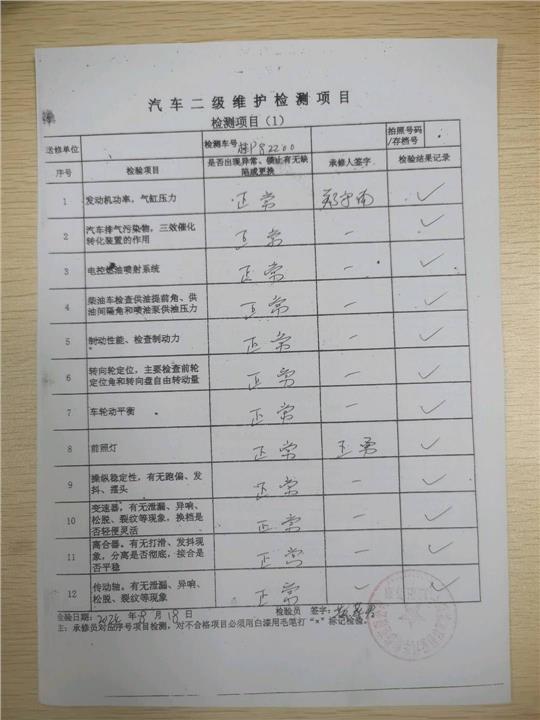 汽车二级维护检测项目
检测项目（1）
送修单位 检测车号 拍照号码/存档号
序号 检验项目 是否出现异常、锁止有无缺陷或更换 承修人签字 检验结果记录
1 发动机功率，气缸压力 正常 ✓
2 汽车排气污染物，三效催化转化装置的作用 正常 — ✓
3 电控燃油喷射系统 正常 — ✓
4 柴油车检查供油提前角、供油间隔角和喷油泵供油压力 正常 — ✓
5 制动性能、检查制动力 正常 — ✓
6 转向轮定位，主要检查前轮定位角和转向盘自由转动量 正常 — ✓
7 车轮动平衡 正常 — ✓
8 前照灯 正常 王勇 ✓
9 操纵稳定性，有无跑偏、发抖、摆头 正常 — ✓
10 变速器，有无泄漏、异响、松脱、裂纹等现象，换档是否轻便灵活 正常 — ✓
11 离合器，有无打滑、发抖现象，分离是否彻底，接合是否平稳 正常 — ✓
12 传动轴，有无泄漏、异响、松脱、裂纹等现象 正常 — ✓
金验日期：2024 年 8 月 18 日 检验员 签字：
主：承修员对应序号项目检测，对不合格项目必须用白漆用毛笔打“×”标记检验。